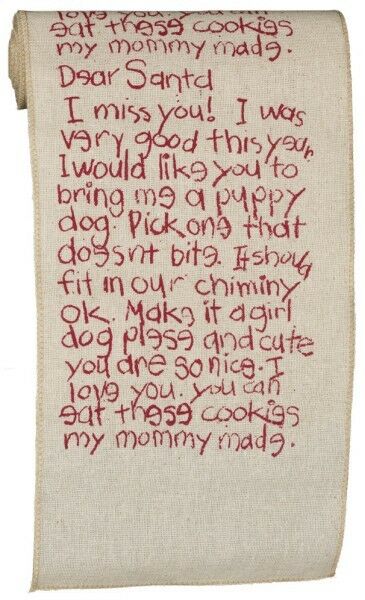 love you. you can
eat these cookies
my mommy made.
Dear Santa
I miss you! I was
very good this year.
I would like you to
bring me a puppy
dog. Pick one that
doesnt bite. It shoud
fit in our chiminy
ok. Make it a girl
dog plese and cute
you are so nice. I
love you. you can
eat these cookies
my mommy made.